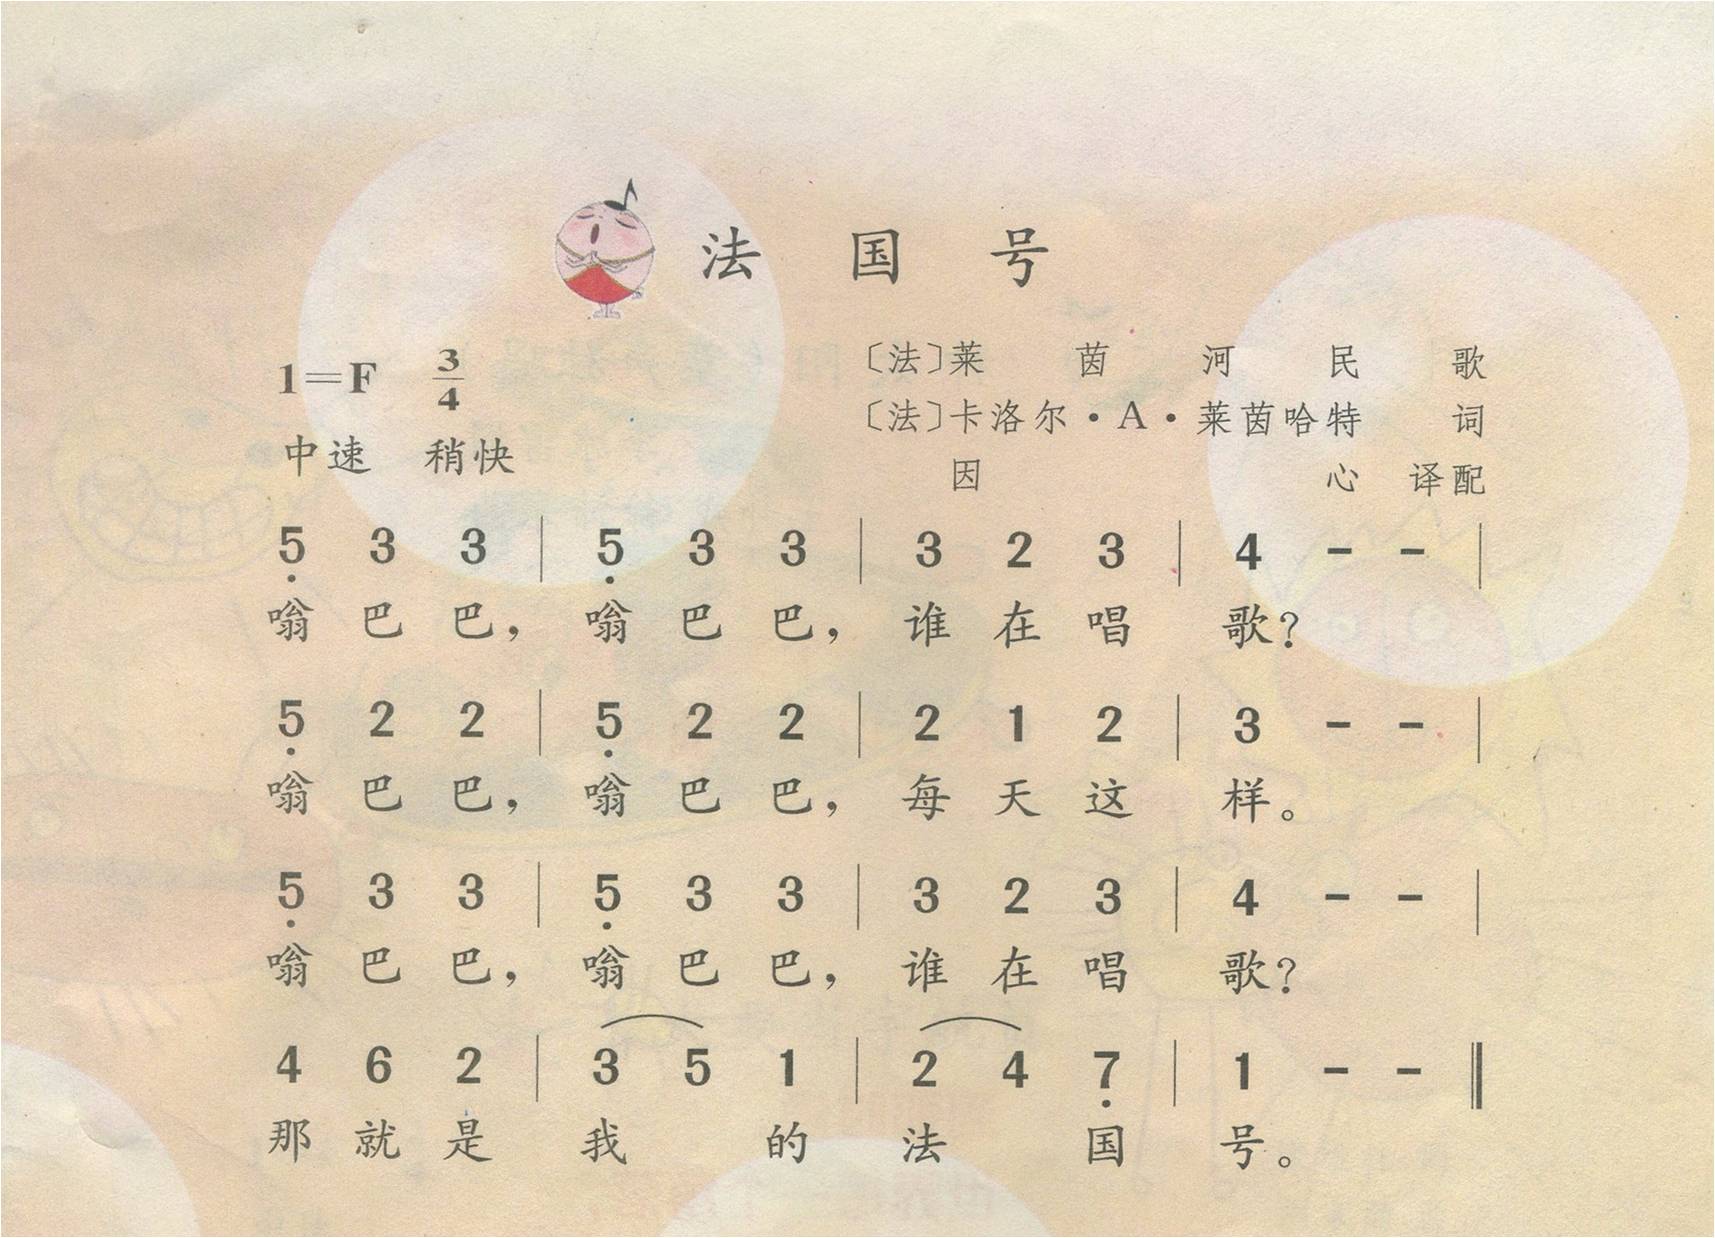 法国号
1=F 3/4 〔法〕莱茵河民歌
〔法〕卡洛尔·A·莱茵哈特 词
中速 稍快 因心 译配
5̣ 3 3 | 5̣ 3 3 | 3 2 3 | 4 - - |
嗡巴巴，嗡巴巴，谁在唱歌？
5̣ 2 2 | 5̣ 2 2 | 2 1 2 | 3 - - |
嗡巴巴，嗡巴巴，每天这样。
5̣ 3 3 | 5̣ 3 3 | 3 2 3 | 4 - - |
嗡巴巴，嗡巴巴，谁在唱歌？
4 6 2 | 3 5 1 | 2 4 7̣ | 1 - - ‖
那就是我的法国号。